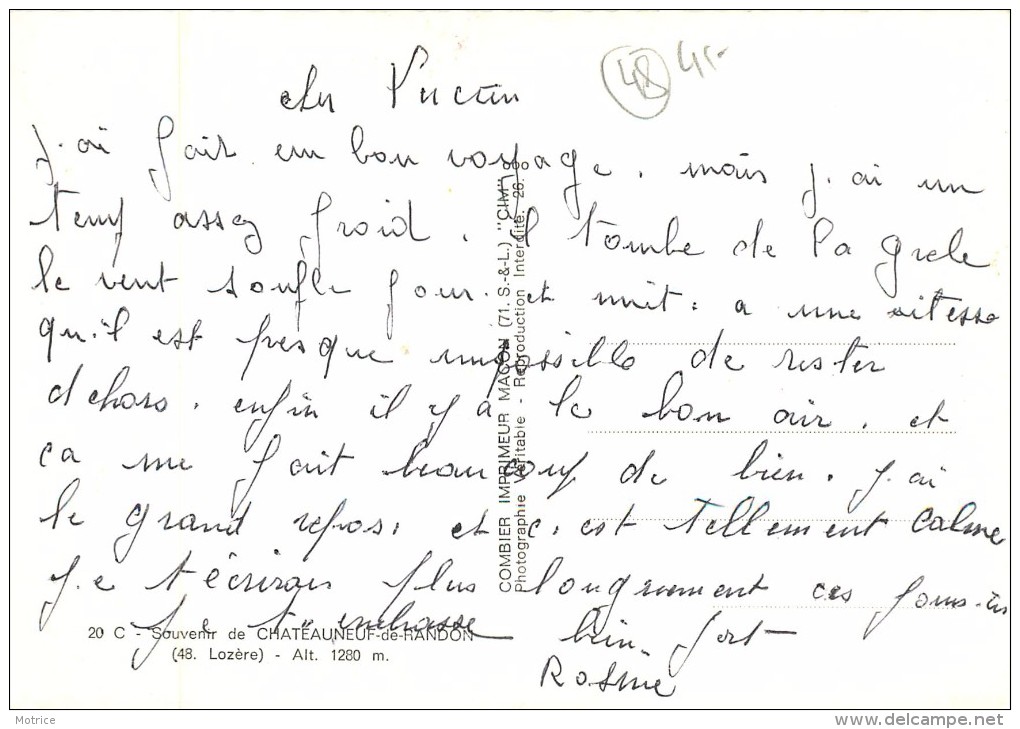 48 45-
cher
j.ai fait un bon voyage, mais j.ai un
temp assez froid. il tombe de la grele
le vent soufle jour et nuit: a une vitesse
qu.il est presque impossible de rester
dehors. enfin il y a le bon air. et
ca me fait beaucoup de bien. J.ai
le grand repos, et c.est tellement calme
J.e t'écrirais plus longuement ces jours-ci
je t'embrasse bien fort
Rosine
COMBIER IMPRIMEUR MACON (71. S.-&-L.) "CIM"
Photographie Véritable - Reproduction Interdite. 26.
20 C - Souvenir de CHATEAUNEUF-de-RANDON
(48. Lozère) - Alt. 1280 m.
Motrice
www.delcampe.net